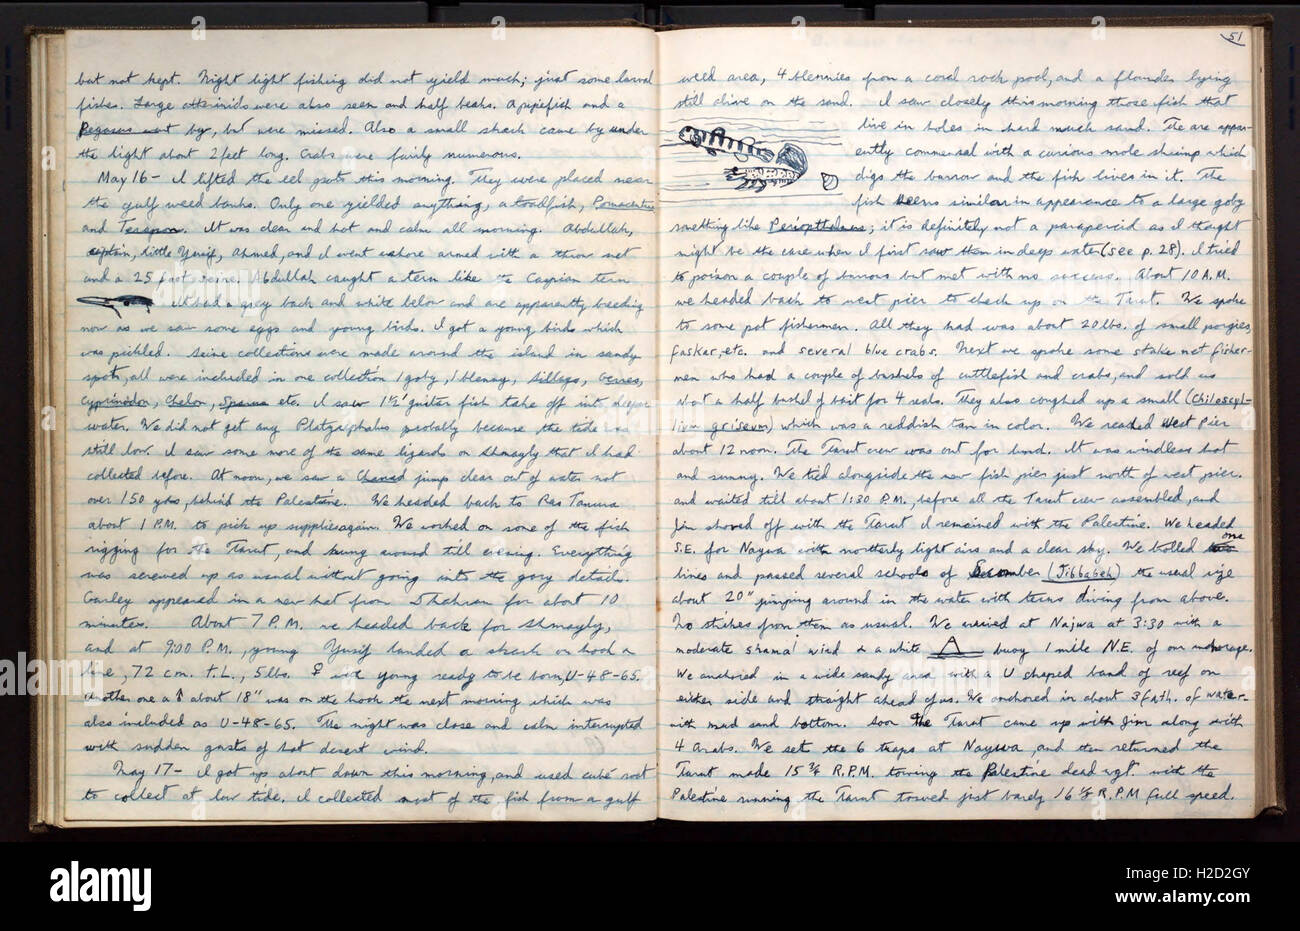 but not kept. Night light fishing did not yield much; just some larval
fishes. Large atherinids were also seen and half beaks. A pipefish and a
Pegasus went by, but were missed. Also a small shark came by under
the light about 2 feet long. Crabs were fairly numerous.
May 16 - I lifted the eel pots this morning. They were placed near
the gulf weed banks. Only one yielded anything, a toadfish, Pomacentrus
and Terapon. It was clear and hot and calm all morning. Abdullah,
captain, little Yusif, Ahmed, and I went ashore armed with a throw net
and a 25 foot seine. Abdullah caught a tern like the Caspian tern
It had a grey back and white below and are apparently breeding
now as we saw some eggs and young birds. I got a young bird which
was pickled. Seine collections were made around the island in sandy
spots, all were included in one collection 1 goby, 1 blenny, Sillago, Gerres,
Cyprinodon, Chelon, Sparus etc. I saw 1½' guitar fish take off into deeper
water. We did not get any Platycephalus probably because the tide was
still low. I saw some more of the same lizards on Shmagly that I had
collected before. At noon, we saw a Chanos jump clear out of water not
over 150 yds, behind the Palestine. We headed back to Ras Tanura
about 1 P.M. to pick up supplies again. We worked on some of the fish
rigging for the Tarut, and hung around till evening. Everything
was screwed up as usual without going into the gory details.
Gurley appeared in a new hat from Dhahran for about 10
minutes. About 7 P.M. we headed back for Shmagly,
and at 9:00 P.M., young Yusif landed a shark on hook &
line, 72 cm. T.L., 5 lbs. ♀ with young ready to be born, U-48-65.
Another one a ♂ about 18" was on the hook the next morning which was
also included as U-48-65. The night was close and calm interrupted
with sudden gusts of hot desert wind.
May 17 - I got up about dawn this morning, and used cubé root
to collect at low tide. I collected most of the fish from a gulf
51
weed area, 4 blennies from a coral rock pool, and a flounder lying
still alive on the sand. I saw closely this morning those fish that
live in holes in hard muck sand. The are appar-
ently commensal with a curious mole shrimp which
digs the burrow and the fish lives in it. The
fish seems similar in appearance to a large goby
something like Periopthalmus; it is definitely not a parapercid as I thought
might be the case when I first saw them in deep water (see p. 28). I tried
to poison a couple of burrows but met with no success. About 10 A.M.
we headed back to west pier to check up on the Tarut. We spoke
to some pot fishermen. All they had was about 20 lbs. of small porgies,
faskar, etc. and several blue crabs. Next we spoke some stake net fisher-
men who had a couple of bushels of cuttlefish and crabs, and sold us
about a half bushel of bait for 4 reals. They also coughed up a small (Chiloscyl-
lium griseum) which was a reddish tan in color. We reached West Pier
about 12 noon. The Tarut crew was out for lunch. It was windless hot
and sunny. We tied alongside the new fish pier just north of west pier.
and waited till about 1:30 P.M., before all the Tarut crew assembled, and
Jim shoved off with the Tarut. I remained with the Palestine. We headed
S.E. for Naywa with northerly light airs and a clear sky. We trolled one
lines and passed several schools of Scomber (Jibbabeh) the usual size
about 20" jumping around in the water with terns diving from above.
No strikes from them as usual. We arrived at Najwa at 3:30 with a
moderate shamal wind & a white buoy 1 mile N.E. of our anchorage.
We anchored in a wide sandy area with a U shaped band of reef on
either side and straight ahead of us. We anchored in about 3 fath. of water-
with mud sand bottom. Soon the Tarut came up with Jim along with
4 Arabs. We set the 6 traps at Naywa, and then returned the
Tarut made 15 ¾ R.P.M. towing the Palestine dead wgt. with the
Palestine running the Tarut towed just barely 16 ⅓ R.P.M full speed.
alamy
alamy
Image ID: H2D2GY
www.alamy.com